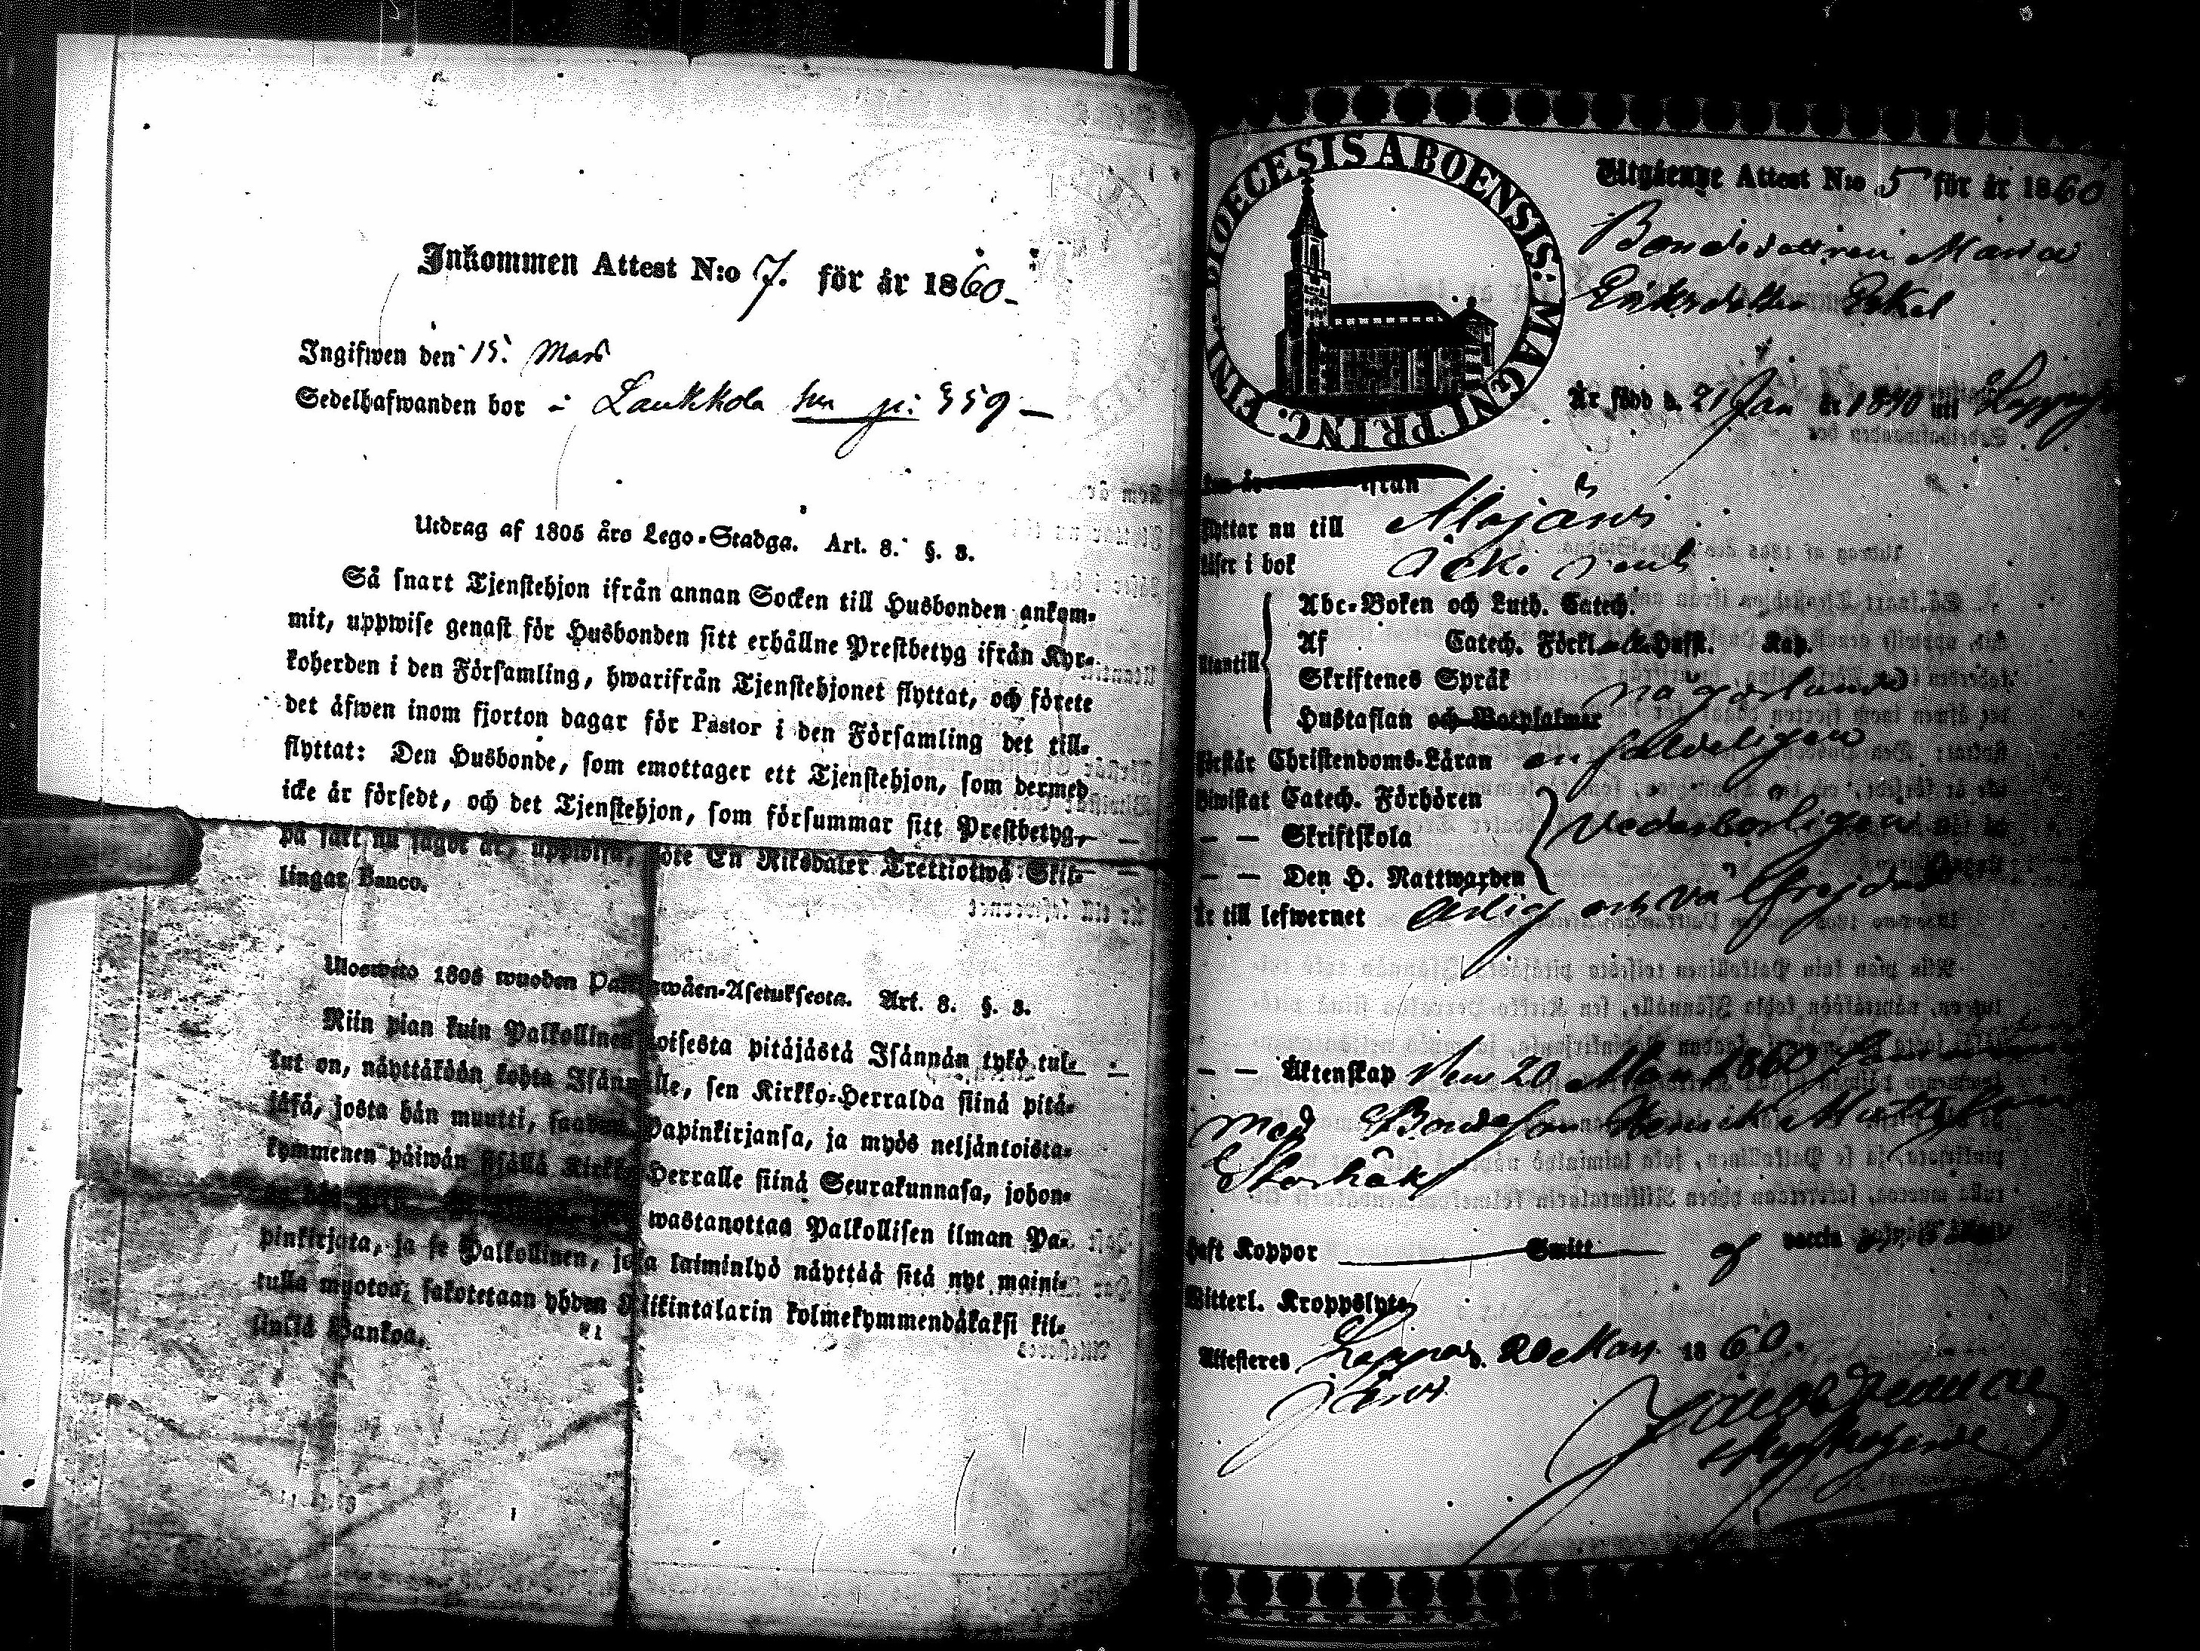 Inkommen Attest N:o 7. för år 1860-
Ingifwen den 15. Mars
Sedelhafwanden bor i Laukkola 359 —
Utdrag af 1805 års Lego-Stadga. Art. 8. §. 3.
Så snart Tjenstehjon ifrån annan Socken till Husbonden ankom-
mit, uppwise genast för Husbonden sitt erhållne Prestbetyg ifrån Kyr-
koherden i den Församling, hwarifrån Tjenstehjonet flyttat, och förete
det äfwen inom fjorton dagar för Pastor i den Församling det till-
flyttat: Den Husbonde, som emottager ett Tjenstehjon, som dermed
icke är försedt, och det Tjenstehjon, som försummar sitt Prestbetyg,
på sätt nu sagdt är, uppwisa, böte En Riksdaler Trettiotwå Skil-
lingar Banco.
Ulosweto 1805 wuoden Palkkawäen-Asetuksesta. Art. 8. §. 3.
Niin pian kuin Palkollinen toisesta pitäjästä Isännän tykö tul-
lut on, näyttäköön kohta Isännälle, sen Kirkko-Herralda siinä pitä-
jäsä, josta hän muutti, saadun Papinkirjansa, ja myös neljäntoista-
kymmenen päiwän sisällä Kirkko-Herralle siinä Seurakunnasa, johon-
wastanottaa Palkollisen ilman Pa-
pinkirjata, ja se Palkollinen, joka laiminlyö näyttää sitä nyt maini-
tulla myotoa, sakotetaan yhden Riikintalarin kolmekymmendäkaksi kil-
linkiä Bankoa.
FINL. DIOECESIS ABOENSIS. MAGNI PRINC.
Utgående Attest N:o 5 för år 1860
Bondedottren Maria
Eriksdotter Eskel
Är född d. 21 Jan år 1840 uti Lappo
ifrån
Flyttar nu till Alajärvi
Läser i bok
Utantill
Abc-Boken och Luth. Catech.
Af Catech. Förkl. Hufst. Kap.
Skriftenes Språk
Hustaflan och Botpsalmer någorlunda
Förstår Christendoms-Läran enfaldeligen
Biwistat Catech. Förhören
— — Skriftskola Vederbörligen
— — Den H. Nattwarden
Är till lefwernet ärlig och väl frejdad
— — Äktenskap den 20 Mars 1860
med Bondeson Henrik
Haft Koppor — Smitt — af
Witterl. Kroppslyte
Attesteras Lappo d. 20 Mars 1860.